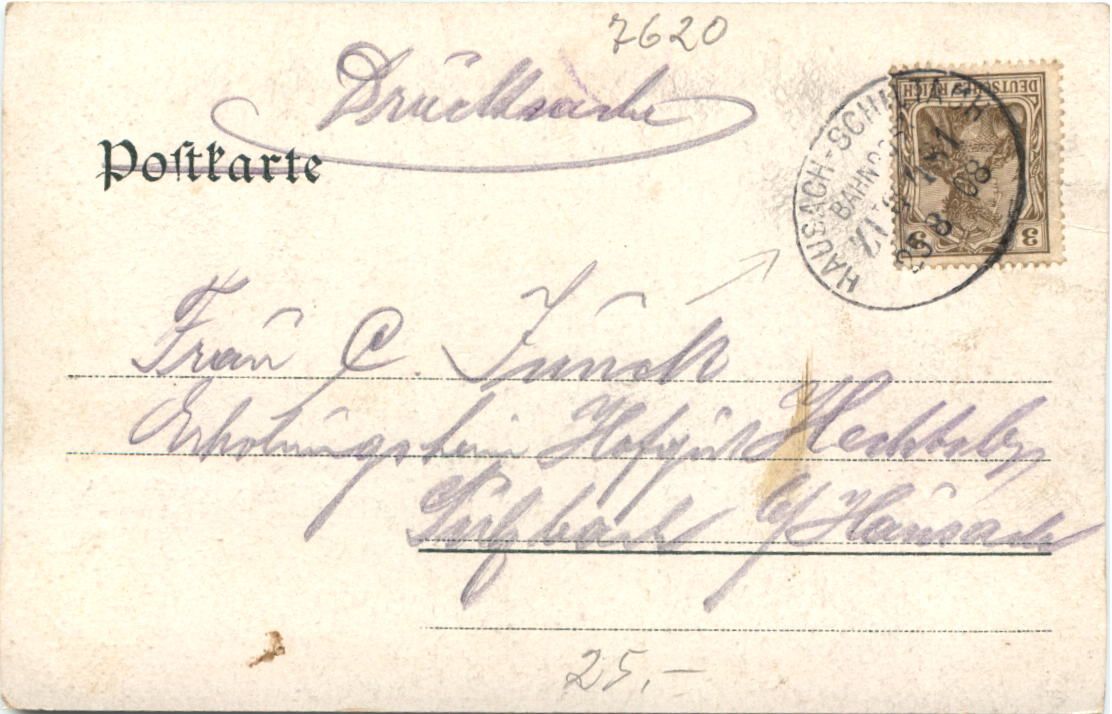 7620
Drucksache
Postkarte
DEUTSCHES REICH
3 3
HAUSACH-SCHILTACH
BAHNPOST
ZUG 1151
25 8 08
Frau C. Junck
Erholungsheim Hofgut Hechtsberg
b/ Hausach
25,-